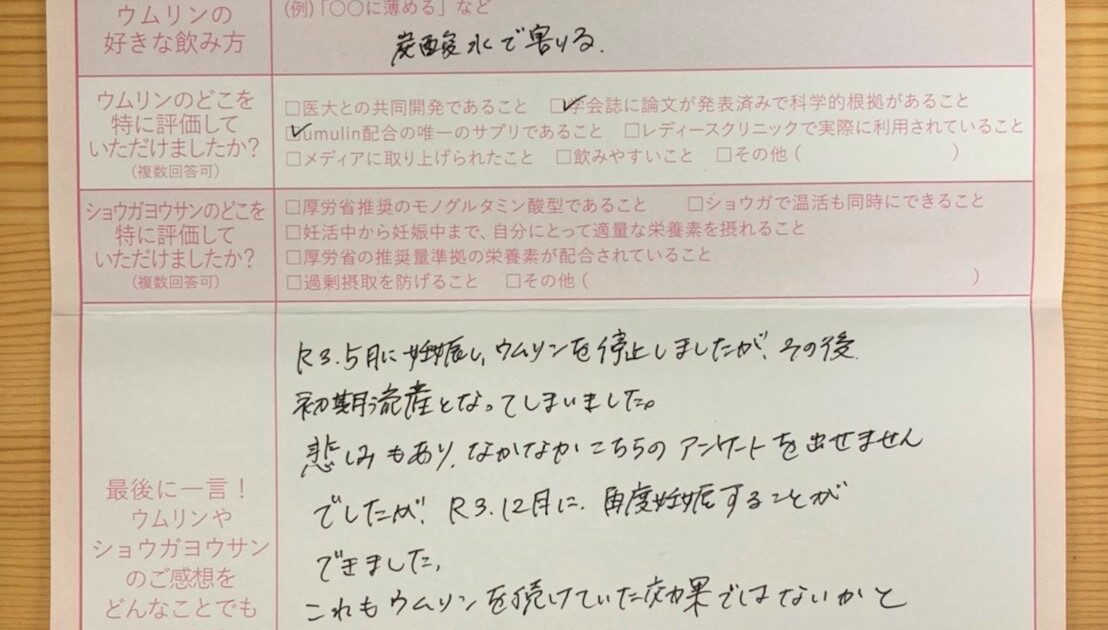 ウムリンの
好きな飲み方
(例)「〇〇に薄める」など
炭酸水で割る.
ウムリンのどこを
特に評価して
いただけましたか?
(複数回答可)
□医大との共同開発であること □学会誌に論文が発表済みで科学的根拠があること
□Umulin配合の唯一のサプリであること □レディースクリニックで実際に利用されていること
□メディアに取り上げられたこと □飲みやすいこと □その他 ( )
ショウガヨウサンのどこを
特に評価して
いただけましたか?
(複数回答可)
□厚労省推奨のモノグルタミン酸型であること □ショウガで温活も同時にできること
□妊活中から妊娠中まで、自分にとって適量な栄養素を摂れること
□厚労省の推奨量準拠の栄養素が配合されていること
□過剰摂取を防げること □その他 ( )
最後に一言!
ウムリンや
ショウガヨウサン
のご感想を
どんなことでも
R3.5月に妊娠し、ウムリンを停止しましたが、その後
初期流産となってしまいました。
悲しみもあり、なかなかこちらのアンケートを出せません
でしたが、R3.12月に、再度妊娠することが
できました。
これもウムリンを続けていた効果ではないかと